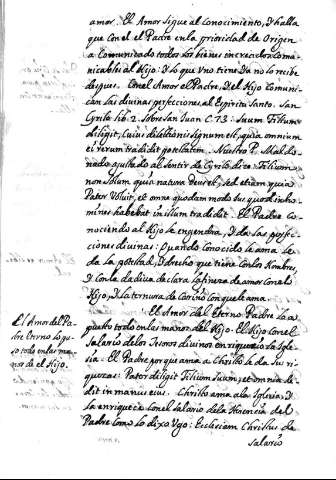 amor. El Amor sigue al conocimiento, I halla
que con el el Padre en la prioridad de Origen
a Comunicado todos los bienes increados comu-
nicables al Hijo: I lo que Uno tiene Ia no lo recibe
despues. Con el Amor el Padre, I el Hijo Comuni-
can las divinas perfecciones al Espiritu Santo. San
Cyrilo lib. 2. sobre San Juan C. 73: suum Filium
diligit, cuius dilectionis signum est, quia omnium
ei rerum tradidit potestatem. Nuestro P. Maldo-
nado ajustado al sentir de Cyrilo dice: Filium
non solum quia natura Deus est, sed etiam quia
Pater Voluit, et omne quodam modo ius quod in ho-
mines habebat in illum tradidit. El Padre Co-
nociendo al Hijo le engendra, I da las perfec-
ciones divinas: Quando Conocido le ama le
da la potestad, I derecho que tiene con los hombres,
I con la dadiva declara la fineza de amor con el
Hijo, I la ternura de Corazon con que le ama.
El Amor del Eterno Padre lo a
puesto todo en las manos del Hijo. El Hijo con el
Salario de los tesoros divinos enriquecio la Igle-
sia. El Padre porque ama a Christo le da sus ri-
quezas: Pater diligit Filium suum, et omnia de-
dit in manus eius. Christo ama a la Iglesia, I
la enriquece con el salario de la Herencia del
Padre como lo dixo Ugo: Ecclesiam Christus de
salario
El Amor del Pa-
dre Eterno lo pu-
so todo en las ma-
nos de el Hijo.